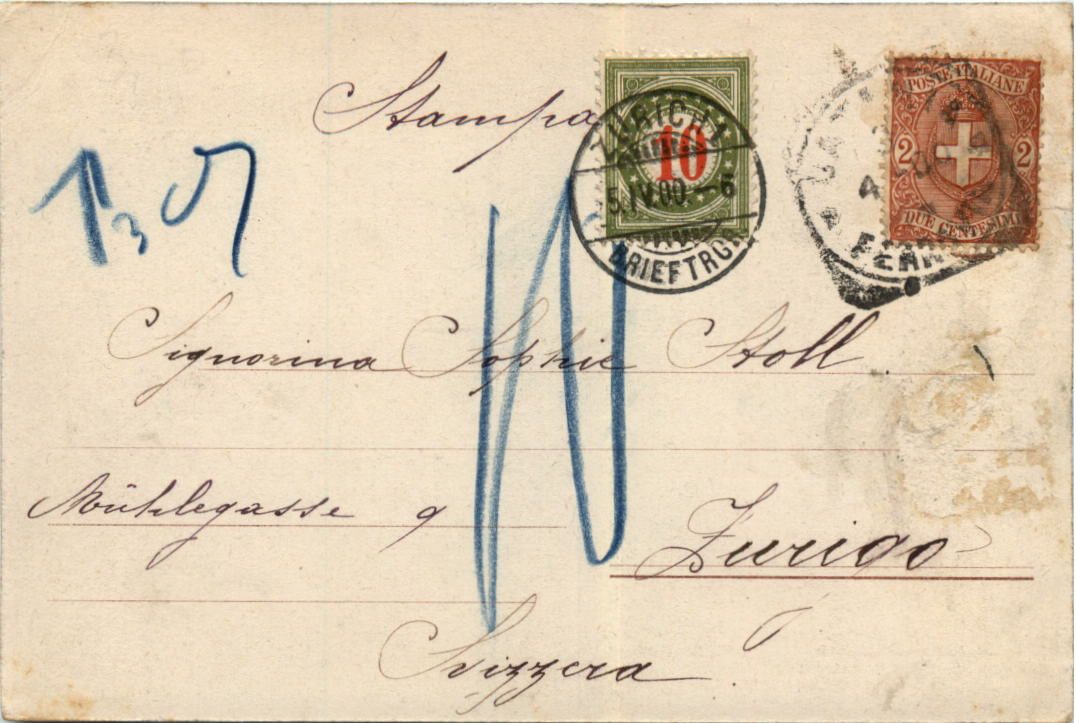 Stampa
ZÜRICH 1
5.IV.00.–6
BRIEFTRG.
10
POSTE ITALIANE
2 2
DUE CENTESIMI
4
FERR
Signorina Sophie Stoll
Mühlegasse 9
Zurigo
Svizzera
10